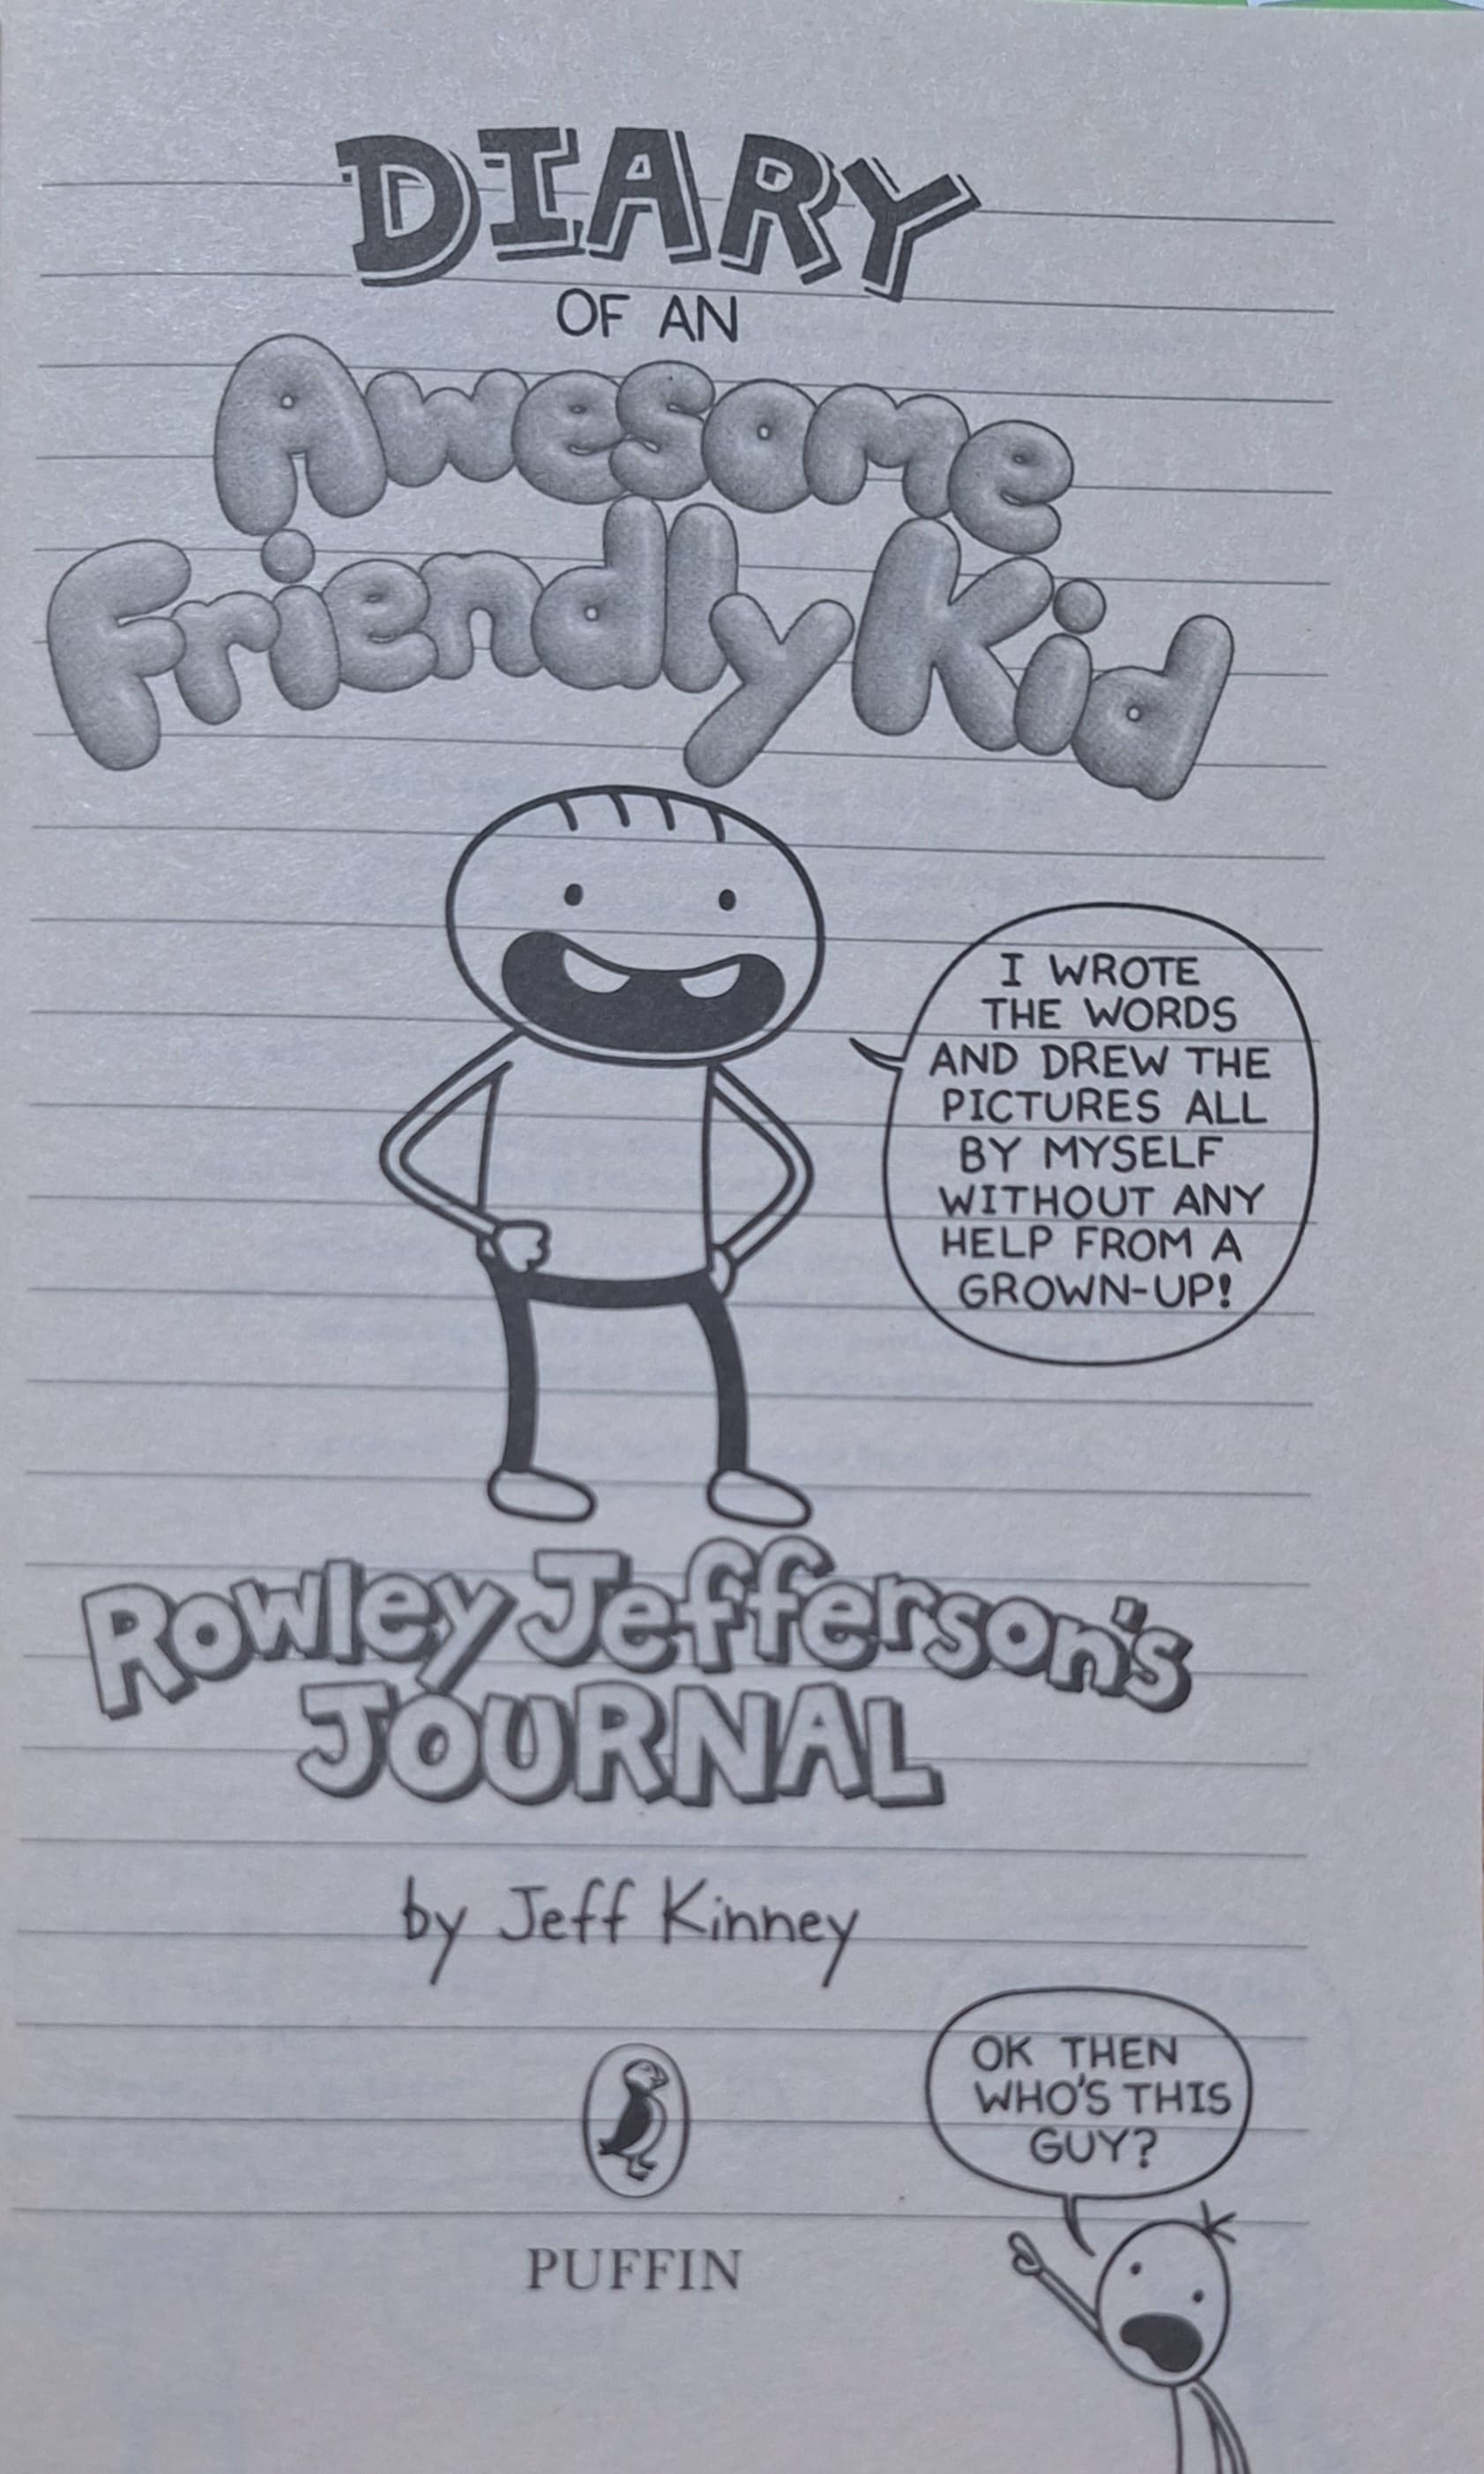 DIARY
OF AN
Awesome
Friendly Kid
I WROTE
THE WORDS
AND DREW THE
PICTURES ALL
BY MYSELF
WITHOUT ANY
HELP FROM A
GROWN-UP!
Rowley Jefferson's
JOURNAL
by Jeff Kinney
OK THEN
WHO'S THIS
GUY?
PUFFIN